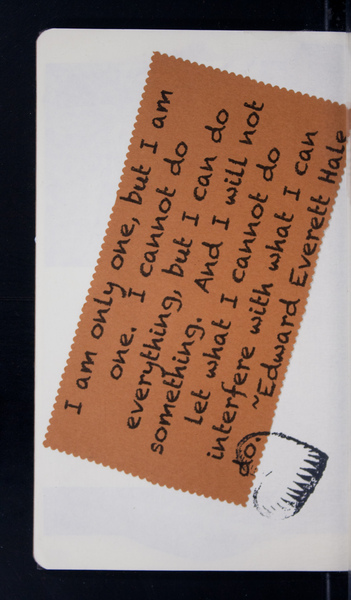 I am only one, but I am
one. I cannot do
everything, but I can do
something. And I will not
let what I cannot do
interfere with what I can
do. ~Edward Everett Hale